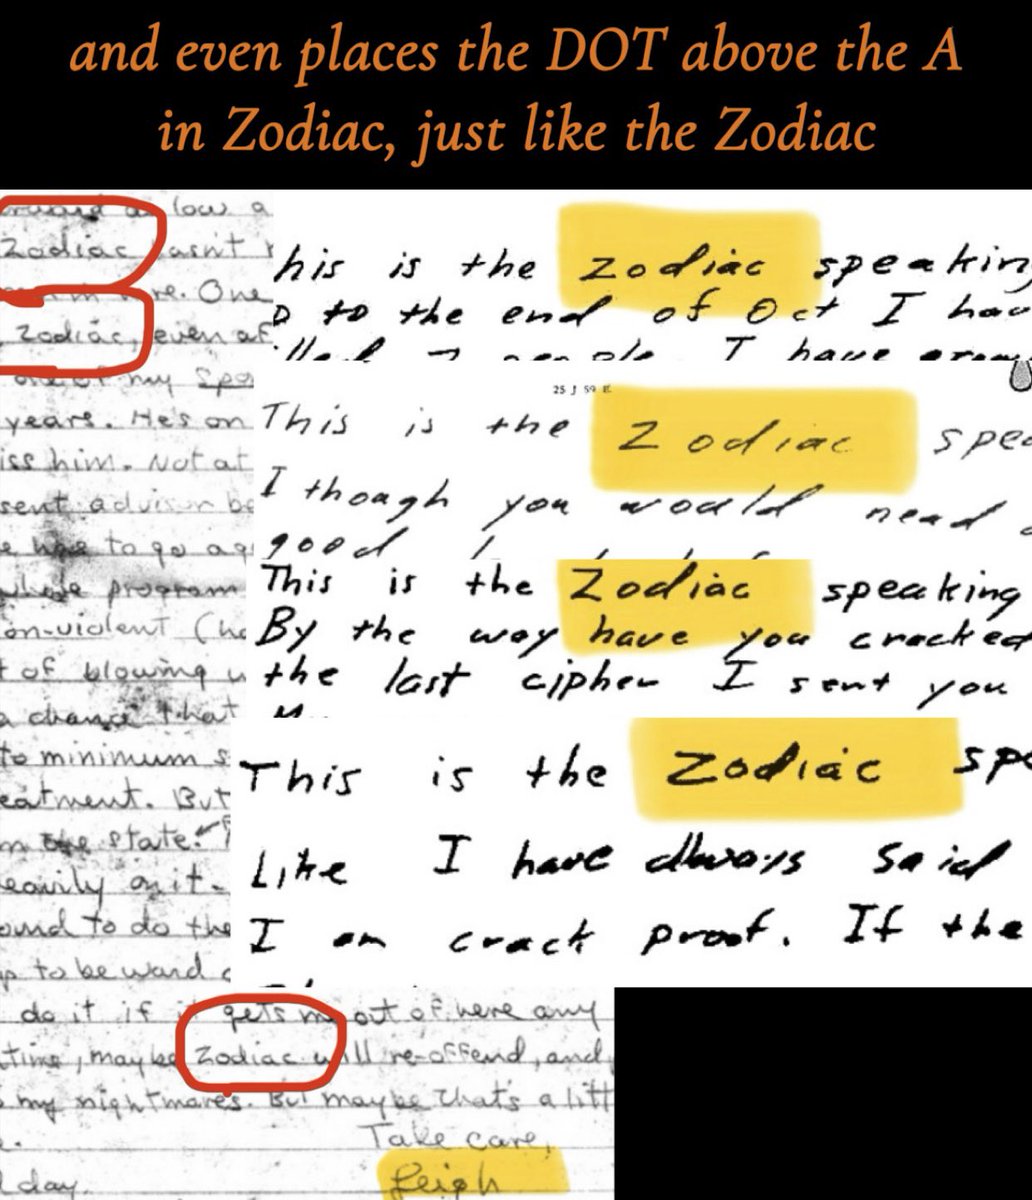 and even places the DOT above the A
in Zodiac, just like the Zodiac
low a
Zodiac asn't
re. One
Zodiac, even af
one of my Spo
years. He's on
iss him. Not at
sent advisor be
to go ag
whole program
on-violent (he
t of blowing u
a chance that
to minimum s
eatment. But
the state.
eavily on it.
ound to do the
p to be ward c
his is the Zodiac speaking
to the end of Oct I hav
This is the Zodiac spea
I though you would nead a
good
This is the Zodiac speaking
By the way have you cracked
the last cipher I sent you
This is the Zodiac spe
Like I have always said
I am crack proof. If the
do it if it gets me out of here any
time, maybe Zodiac will re-offend, and
my nightmares. But maybe that's a litt
Take care,
day. Leigh